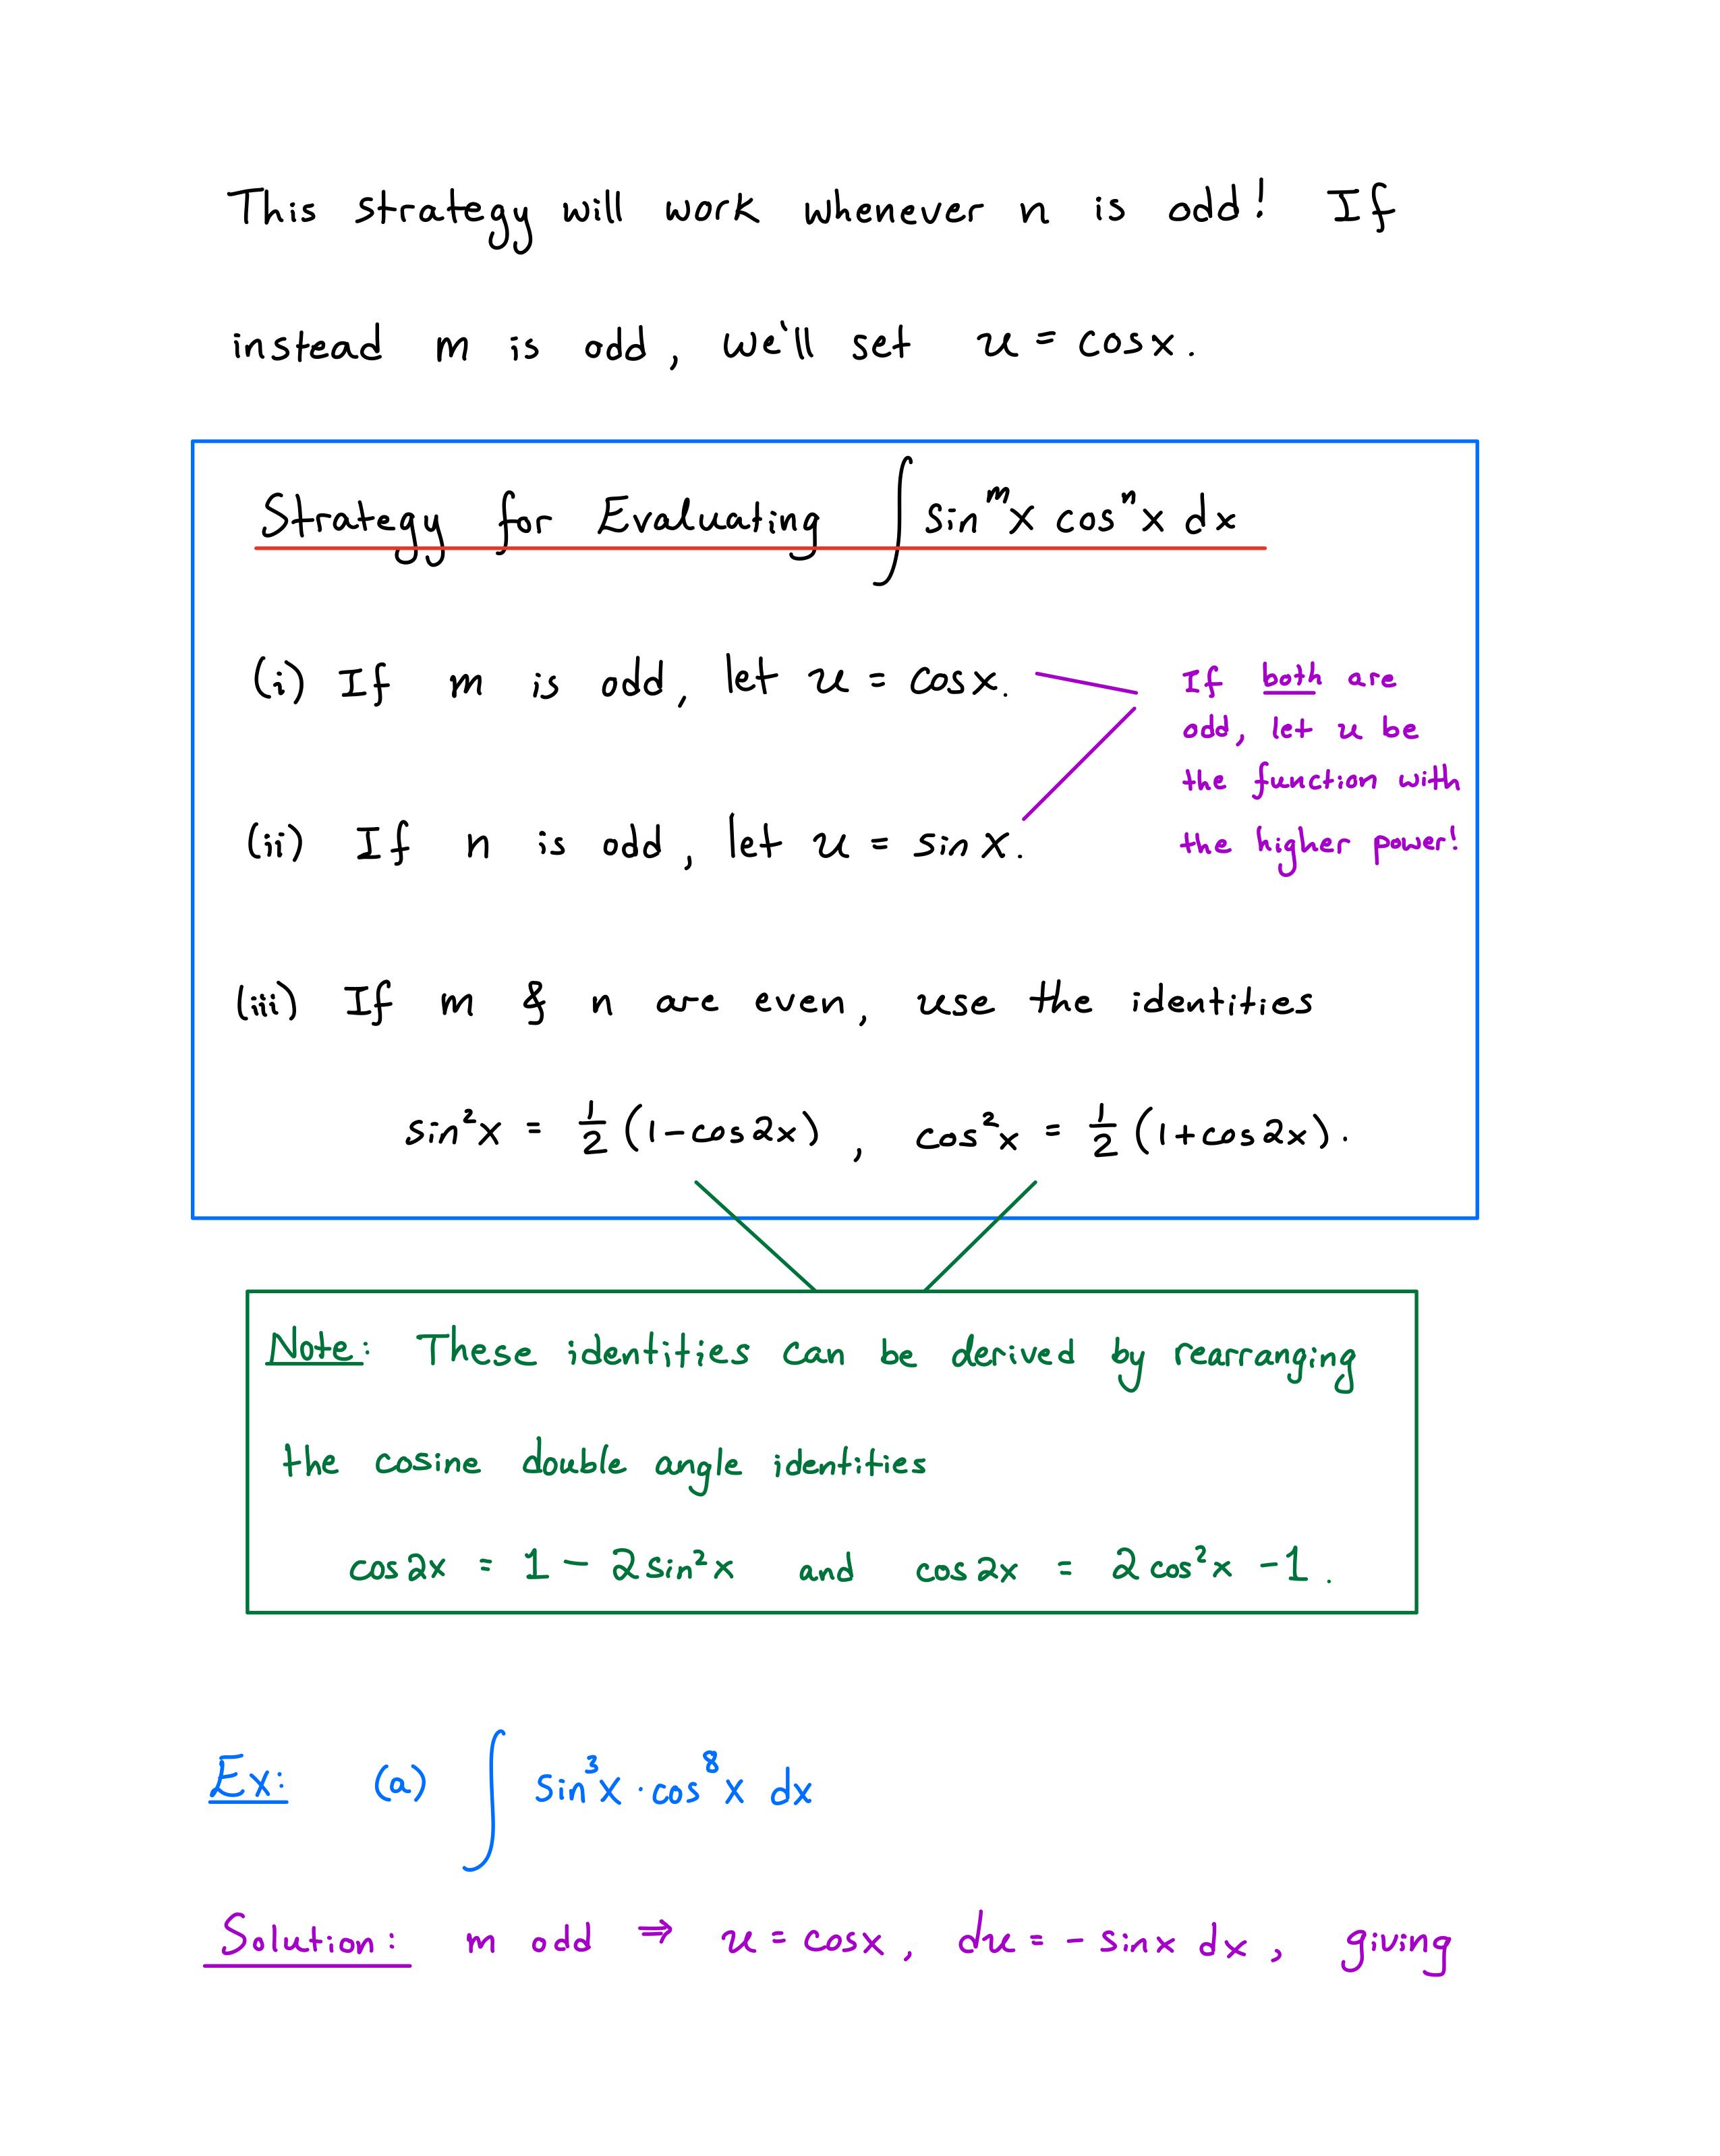 This strategy will work whenever n is odd! If
instead m is odd, we'll set u = cosx.
Strategy for Evaluating ∫ sin^m x cos^n x dx
(i) If m is odd, let u = cosx.
If both are
odd, let u be
the function with
the higher power!
(ii) If n is odd, let u = sinx.
(iii) If m & n are even, use the identities
sin²x = 1/2 (1-cos2x), cos²x = 1/2 (1+cos2x).
Note: These identities can be derived by rearranging
the cosine double angle identities
cos2x = 1 - 2sin²x and cos2x = 2cos²x - 1.
Ex: (a) ∫ sin³x · cos⁸x dx
Solution: m odd ⇒ u = cosx, du = - sinx dx, giving